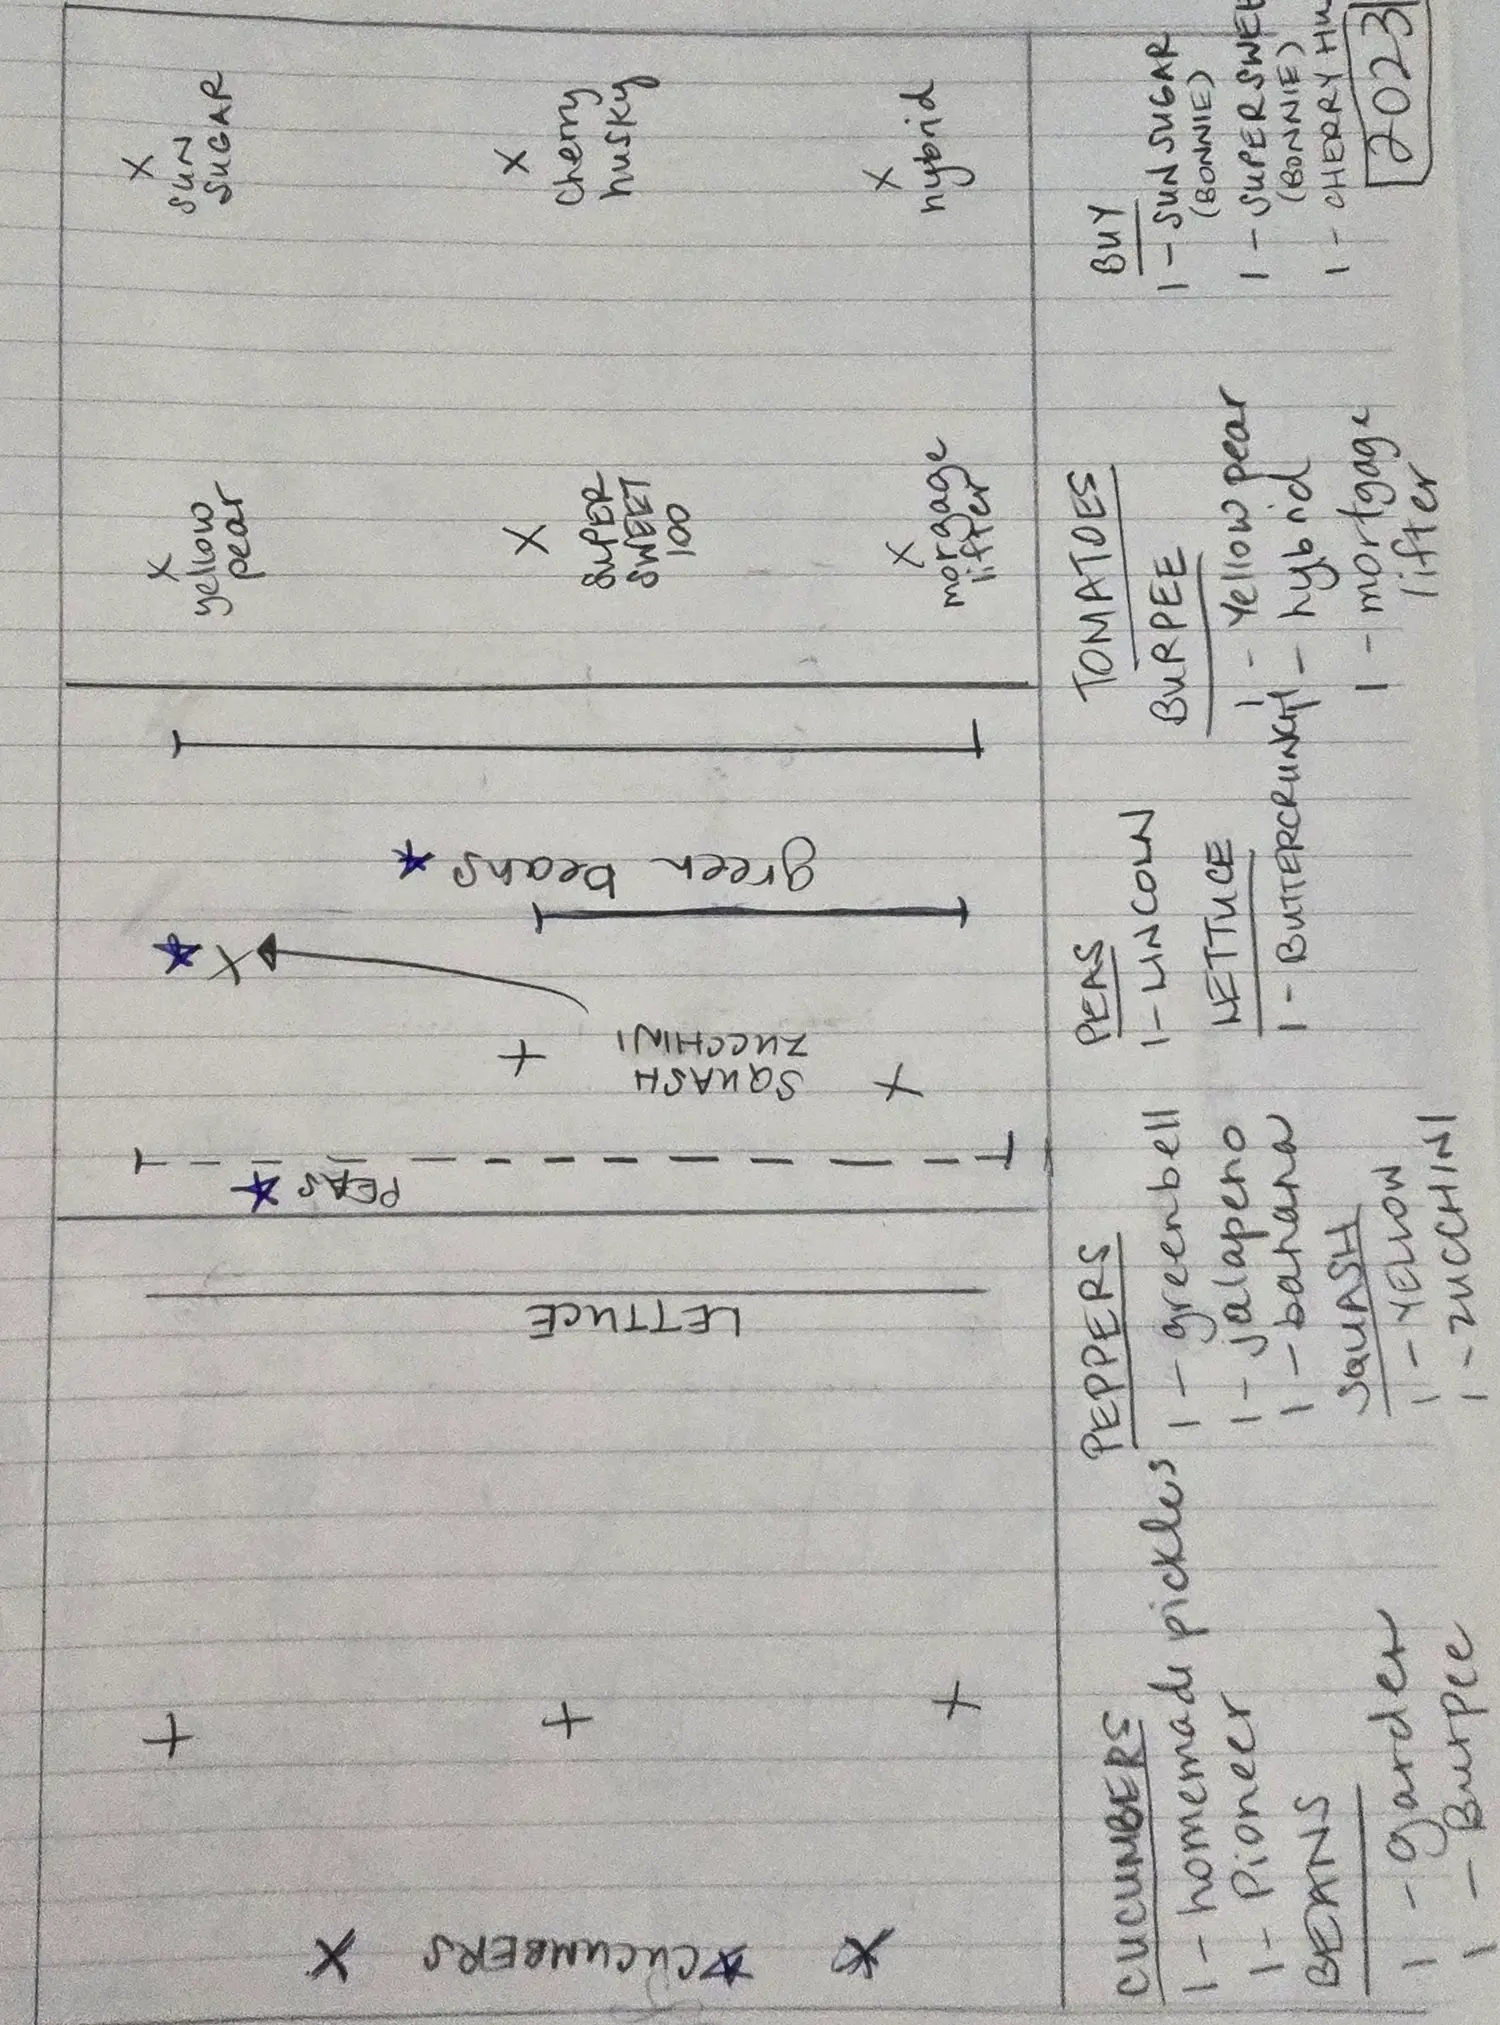 X
SUN
SUGAR
X
cherry
husky
X
hybrid
X
yellow
pear
X
SUPER
SWEET
100
X
morgage
lifter
green beans ★
★ X
SQUASH
ZUCCHINI
X
PEAS ★
LETTUCE
X ★CUCUMBERS X
CUCUMBERS
1 - homemade pickles
1 - Pioneer
BEANS
1 - garden
1 - Burpee
PEPPERS
1 - greenbell
1 - Jalapeno
1 - banana
SQUASH
1 - YELLOW
1 - ZUCCHINI
PEAS
1 - LINCOLN
LETTUCE
1 - BUTTERCRUNCH
TOMATOES
BURPEE
1 - Yellow pear
1 - hybrid
1 - mortgage
lifter
BUY
1 - SUN SUGAR
(BONNIE)
1 - SUPER SWEET
(BONNIE)
1 - CHERRY HU
2023